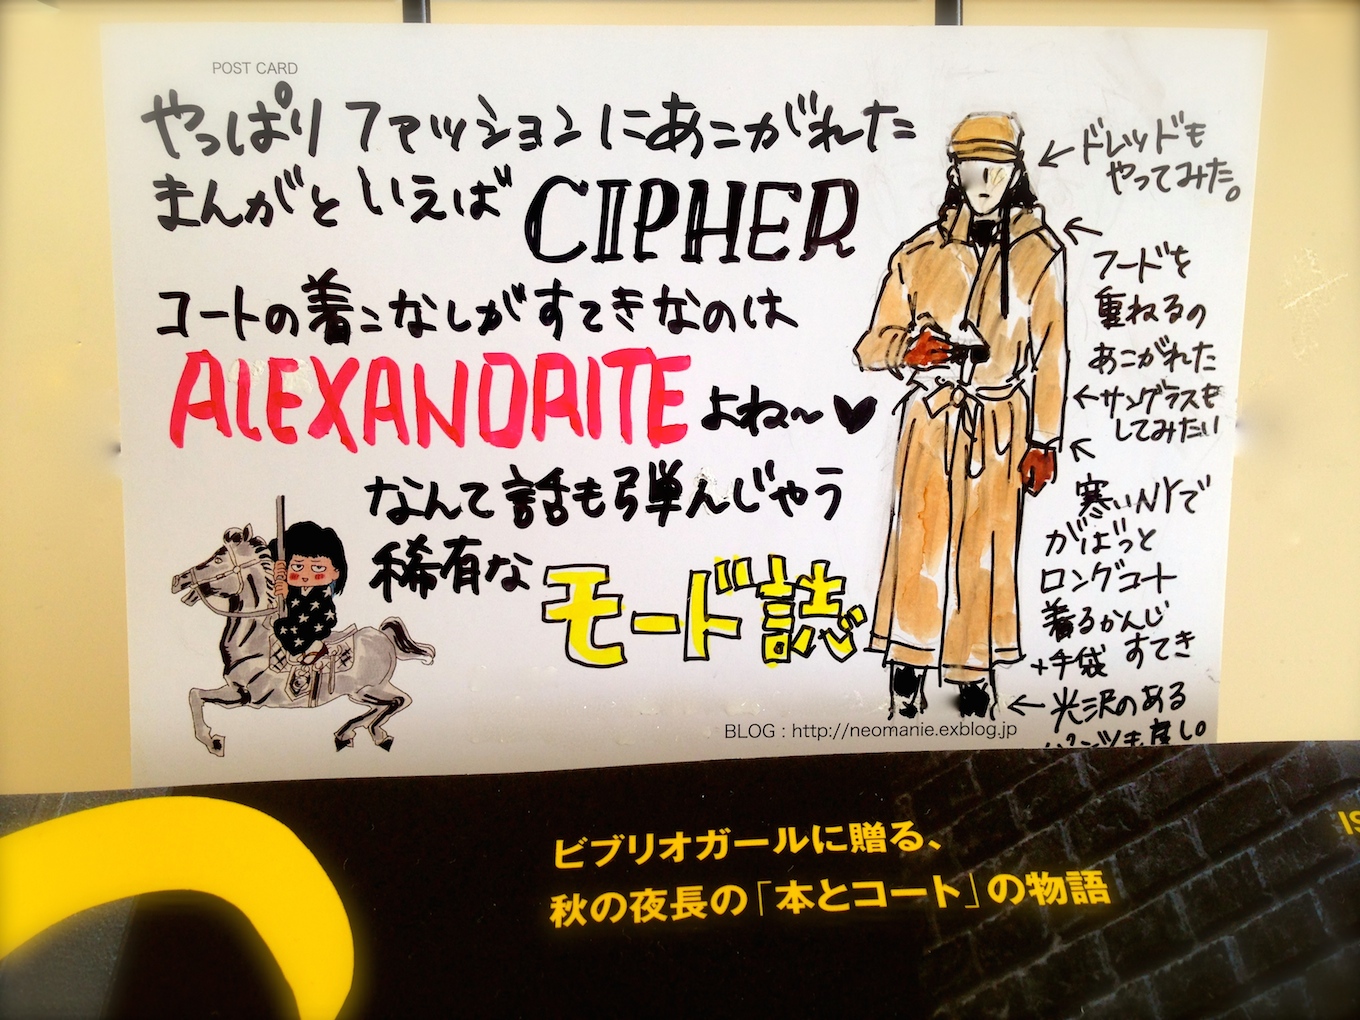 POST CARD
やっぱり ファッションにあこがれた
まんがと いえば CIPHER
コートの着こなしがすてきなのは
ALEXANDRITE よね〜♥
なんて 話も弾んじゃう
稀有な モード誌
←ドレッドも
やってみた。
フードを
重ねるの
あこがれた
←サングラスも
してみたい
寒いNYで
がばっと
ロングコート
着るかんじ
+手袋 すてき
←光沢のある
パンツも良し。
BLOG : http://neomanie.exblog.jp
ビブリオガールに贈る、
秋の夜長の「本とコート」の物語
IS